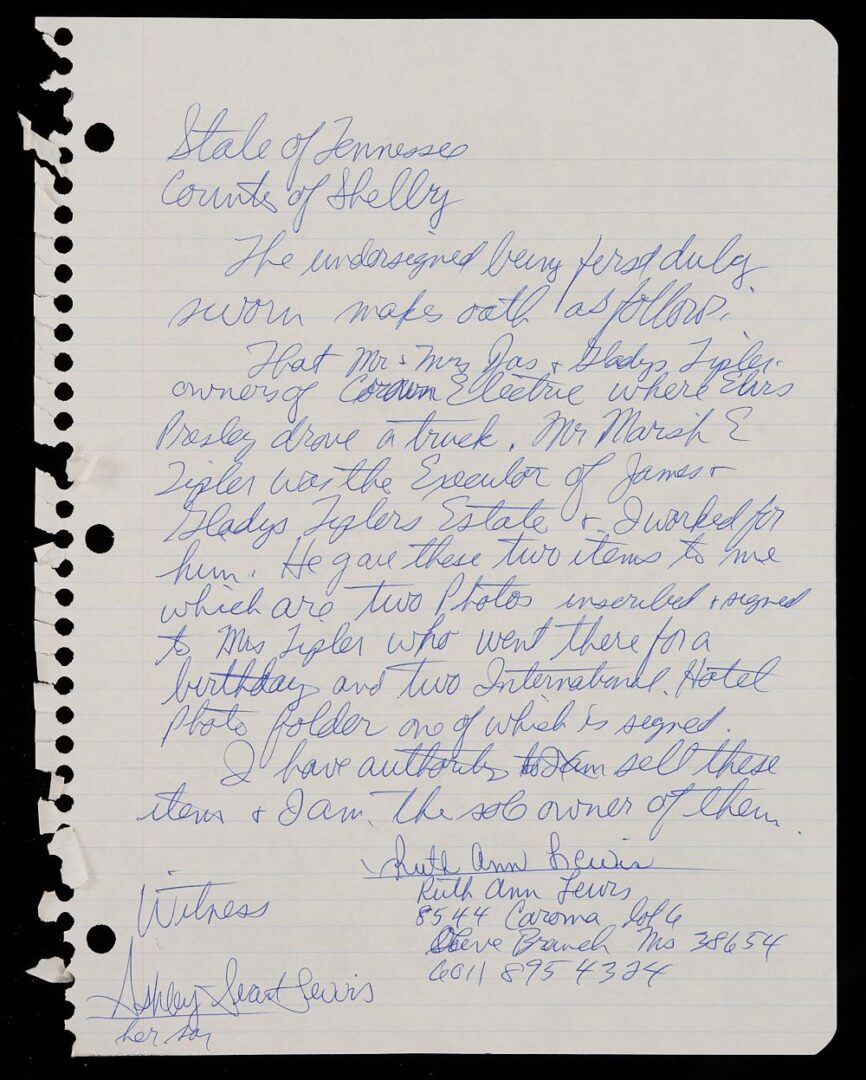 State of Tennessee
County of Shelby
The undersigned being first duly
sworn makes oath as follows:
That Mr & Mrs Jas & Gladys Tipler
owners of Crown Electric where Elvis
Presley drove a truck. Mr Marsh E
Tipler was the Executor of James &
Gladys Tiplers Estate & I worked for
him. He gave these two items to me
which are two Photos inscribed & signed
to Mrs Tipler who went there for a
birthday and two International Hotel
Photo folder one of which is signed.
I have authority to sell these
items & I am the sole owner of them.
Ruth Ann Lewis
Ruth Ann Lewis
8544 Caroma Lot 6
Olive Branch Ms 38654
(601) 895 4324
Witness
Ashley Lewis
her son